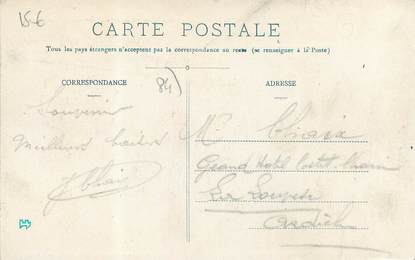 15€
CARTE POSTALE
Tous les pays étrangers n'acceptent pas la correspondance au recto (se renseigner à la Poste)
CORRESPONDANCE
ADRESSE
84)
Souvenir
Meilleurs baisers
M. Chaix
Grand Hotel
Ardèch